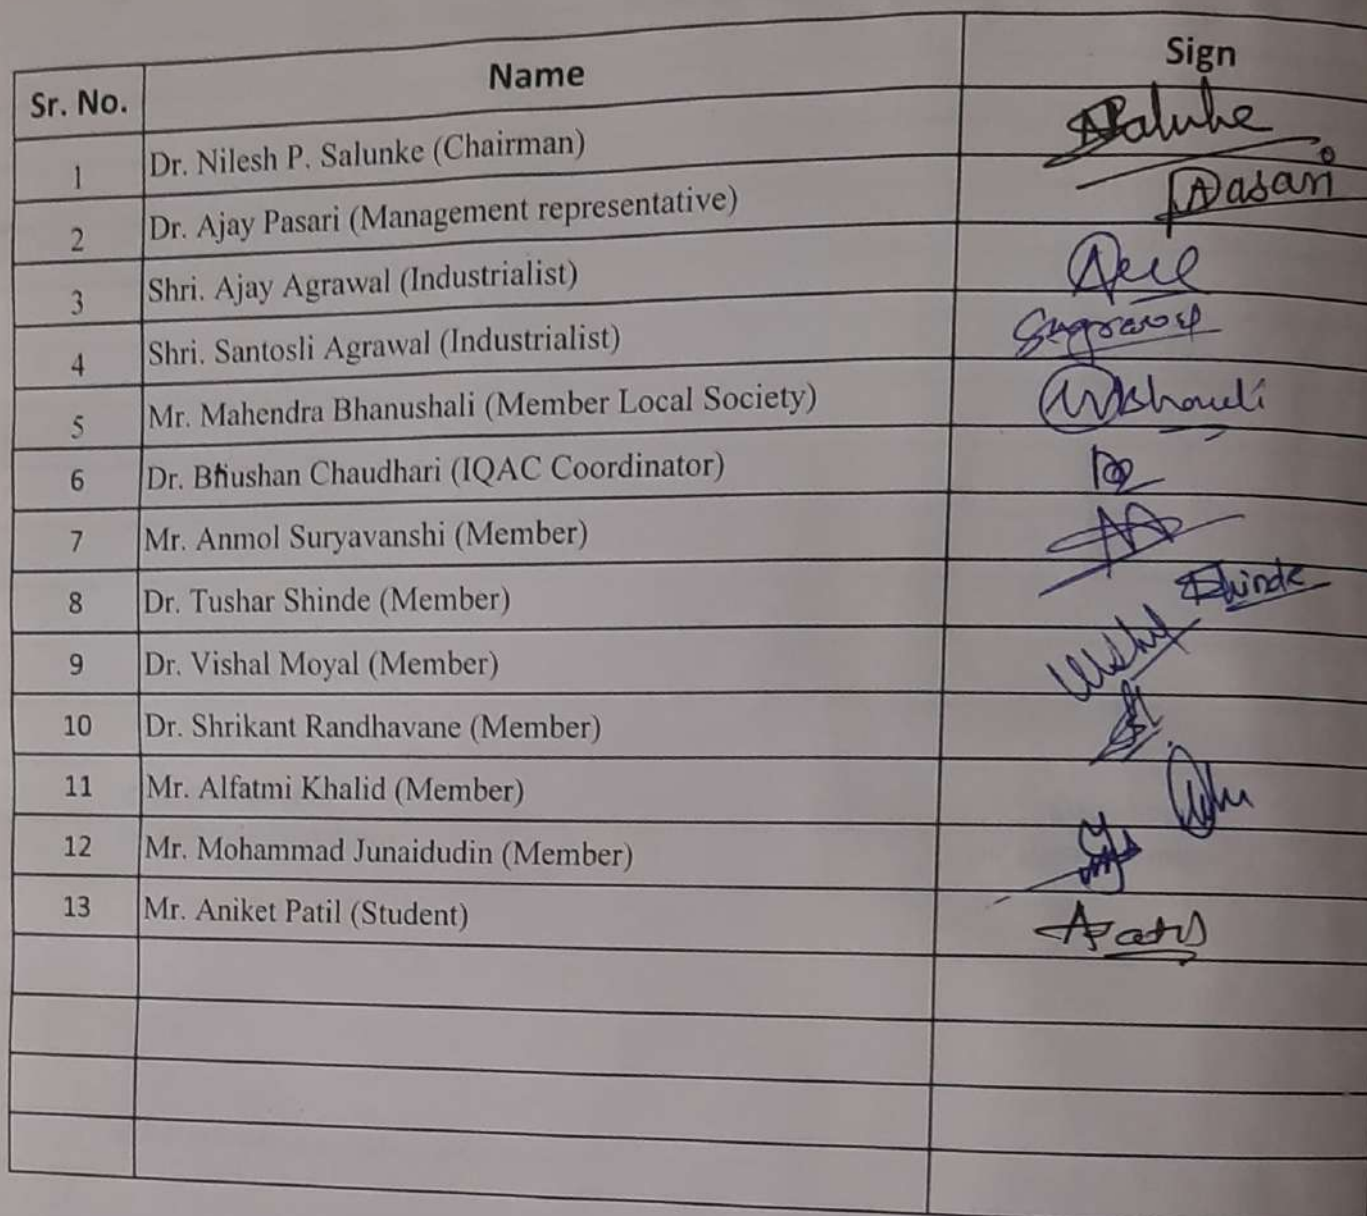 Sr. No. Name Sign
1 Dr. Nilesh P. Salunke (Chairman) Salunke
2 Dr. Ajay Pasari (Management representative) Pasari
3 Shri. Ajay Agrawal (Industrialist)
4 Shri. Santosli Agrawal (Industrialist)
5 Mr. Mahendra Bhanushali (Member Local Society)
6 Dr. Bhushan Chaudhari (IQAC Coordinator)
7 Mr. Anmol Suryavanshi (Member)
8 Dr. Tushar Shinde (Member) Shinde
9 Dr. Vishal Moyal (Member)
10 Dr. Shrikant Randhavane (Member)
11 Mr. Alfatmi Khalid (Member)
12 Mr. Mohammad Junaidudin (Member)
13 Mr. Aniket Patil (Student) APatil